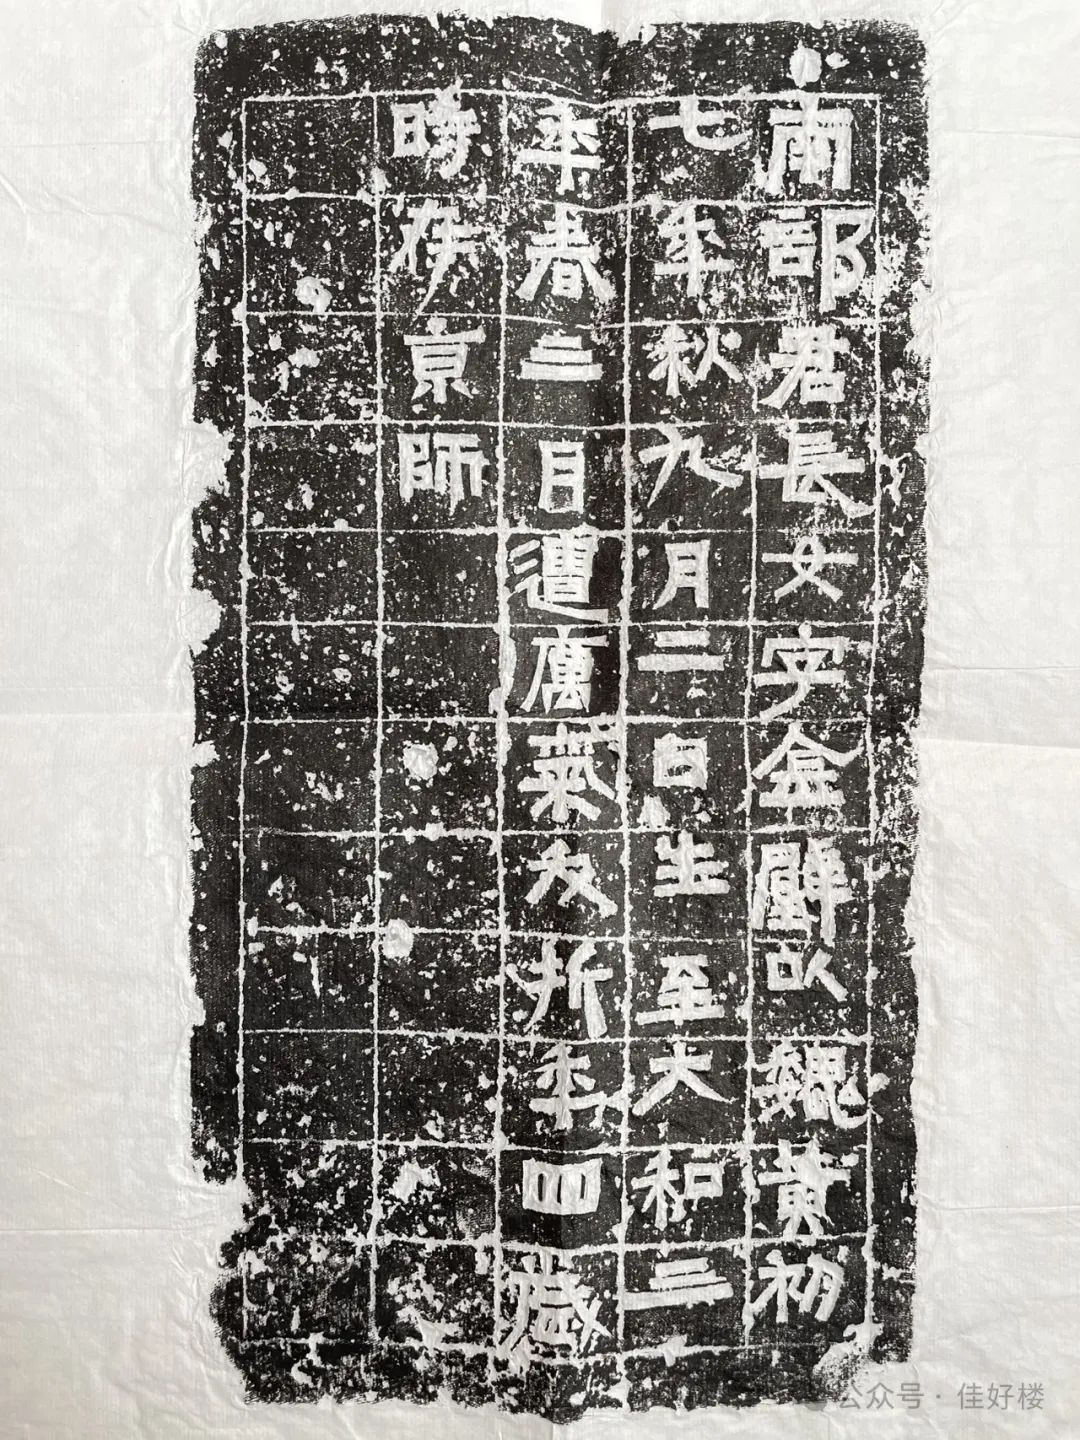 南部君長女字金以魏黃初
七年秋九月二日生至大和三
年春三月遭厲氣夭折年四歲
時在京師
公众号 · 佳好楼